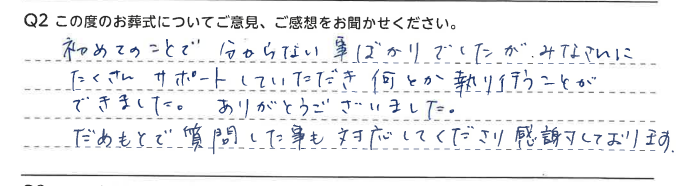 Q2 この度のお葬式についてご意見、ご感想をお聞かせください。
初めてのことで 分からない事ばかりでしたが、みなさんに
たくさん サポートしていただき 何とか執り行うことが
できました。 ありがとうございました。
だめもとで質問した事も対応してくださり感謝しております。